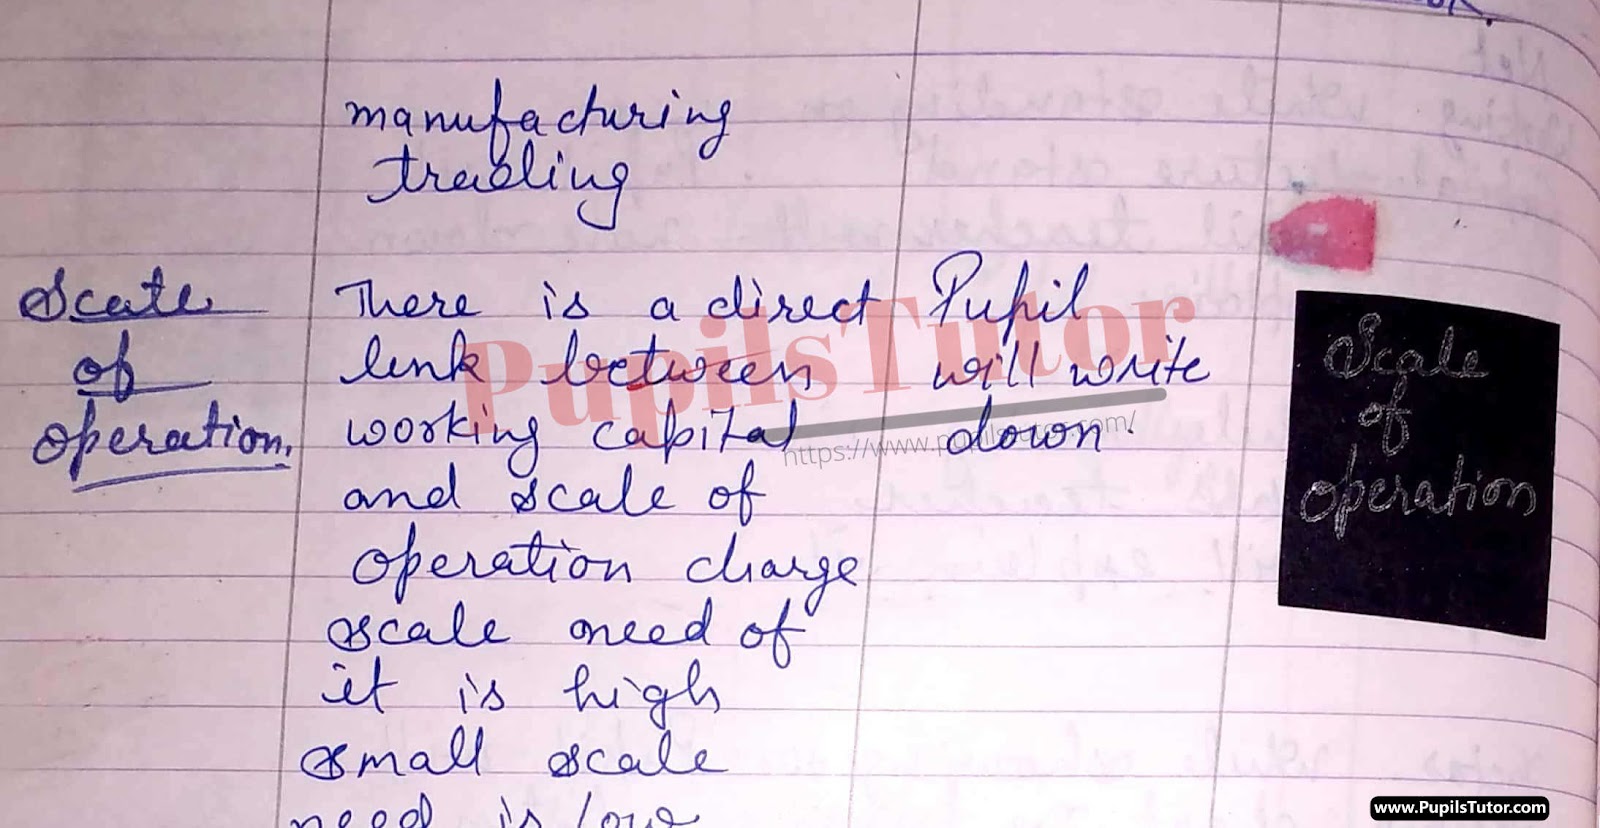 manufacturing
trading
Scale
of
operation.
There is a direct
link between
working capital
and scale of
operation charge
scale need of
it is high
small scale
need is low
Pupil
will write
down.
Scale
of
operation
PupilsTutor
https://www.pupilstutor.com/
www.PupilsTutor.com